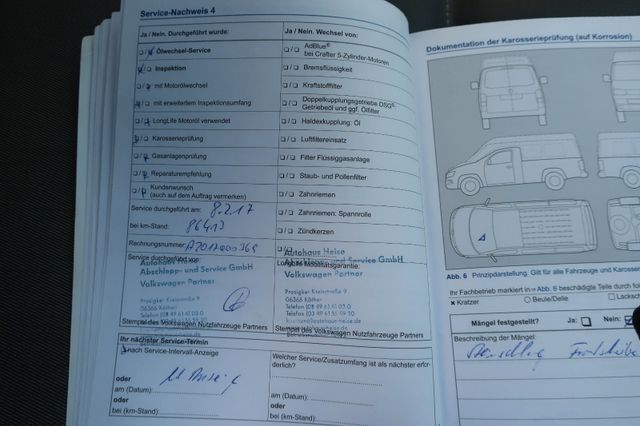 Service-Nachweis 4
Ja / Nein. Durchgeführt wurde:
Ölwechsel-Service
Inspektion
mit Motorölwechsel
mit erweitertem Inspektionsumfang
LongLife Motoröl verwendet
Karosserieprüfung
Gasanlagenprüfung
Reparaturempfehlung
Kundenwunsch
(auch auf dem Auftrag vermerken)
Service durchgeführt am: 8.2.17
bei km-Stand: 86413
Rechnungsnummer:
Service durchgeführt von:
Autohaus Heise
Abschlepp- und Service GmbH
Volkswagen Partner
Prosigker Kreisstraße 9
06366 Köthen
Stempel des Volkswagen Nutzfahrzeuge Partners
Ja / Nein. Wechsel von:
AdBlue®
bei Crafter 5-Zylinder-Motoren
Bremsflüssigkeit
Kraftstofffilter
Doppelkupplungsgetriebe DSG®-
Getriebeöl und ggf. Ölfilter
Haldexkupplung: Öl
Luftfiltereinsatz
Filter Flüssiggasanlage
Staub- und Pollenfilter
Zahnriemen
Zahnriemen: Spannrolle
Zündkerzen
LongLife Mobilitätsgarantie:
Autohaus Heise
Abschlepp- und Service GmbH
Volkswagen Partner
Prosigker Kreisstraße 9
06366 Köthen
Stempel des Volkswagen Nutzfahrzeuge Partners
Ihr nächster Service-Termin
nach Service-Intervall-Anzeige
oder
am (Datum):
oder
bei (km-Stand):
Welcher Service/Zusatzumfang ist als nächster erfor-
derlich?
am (Datum):
oder
bei (km-Stand):
Dokumentation der Karosserieprüfung (auf Korrosion)
Abb. 6 Prinzipdarstellung. Gilt für alle Fahrzeuge und Karosser
Ihr Fachbetrieb markiert in Abb. 6 beschädigte Teile durch fol
x Kratzer
Beule/Delle
Lacks
Mängel festgestellt? Ja: Nein:
Beschreibung der Mängel:
Steinschlag Frontscheibe